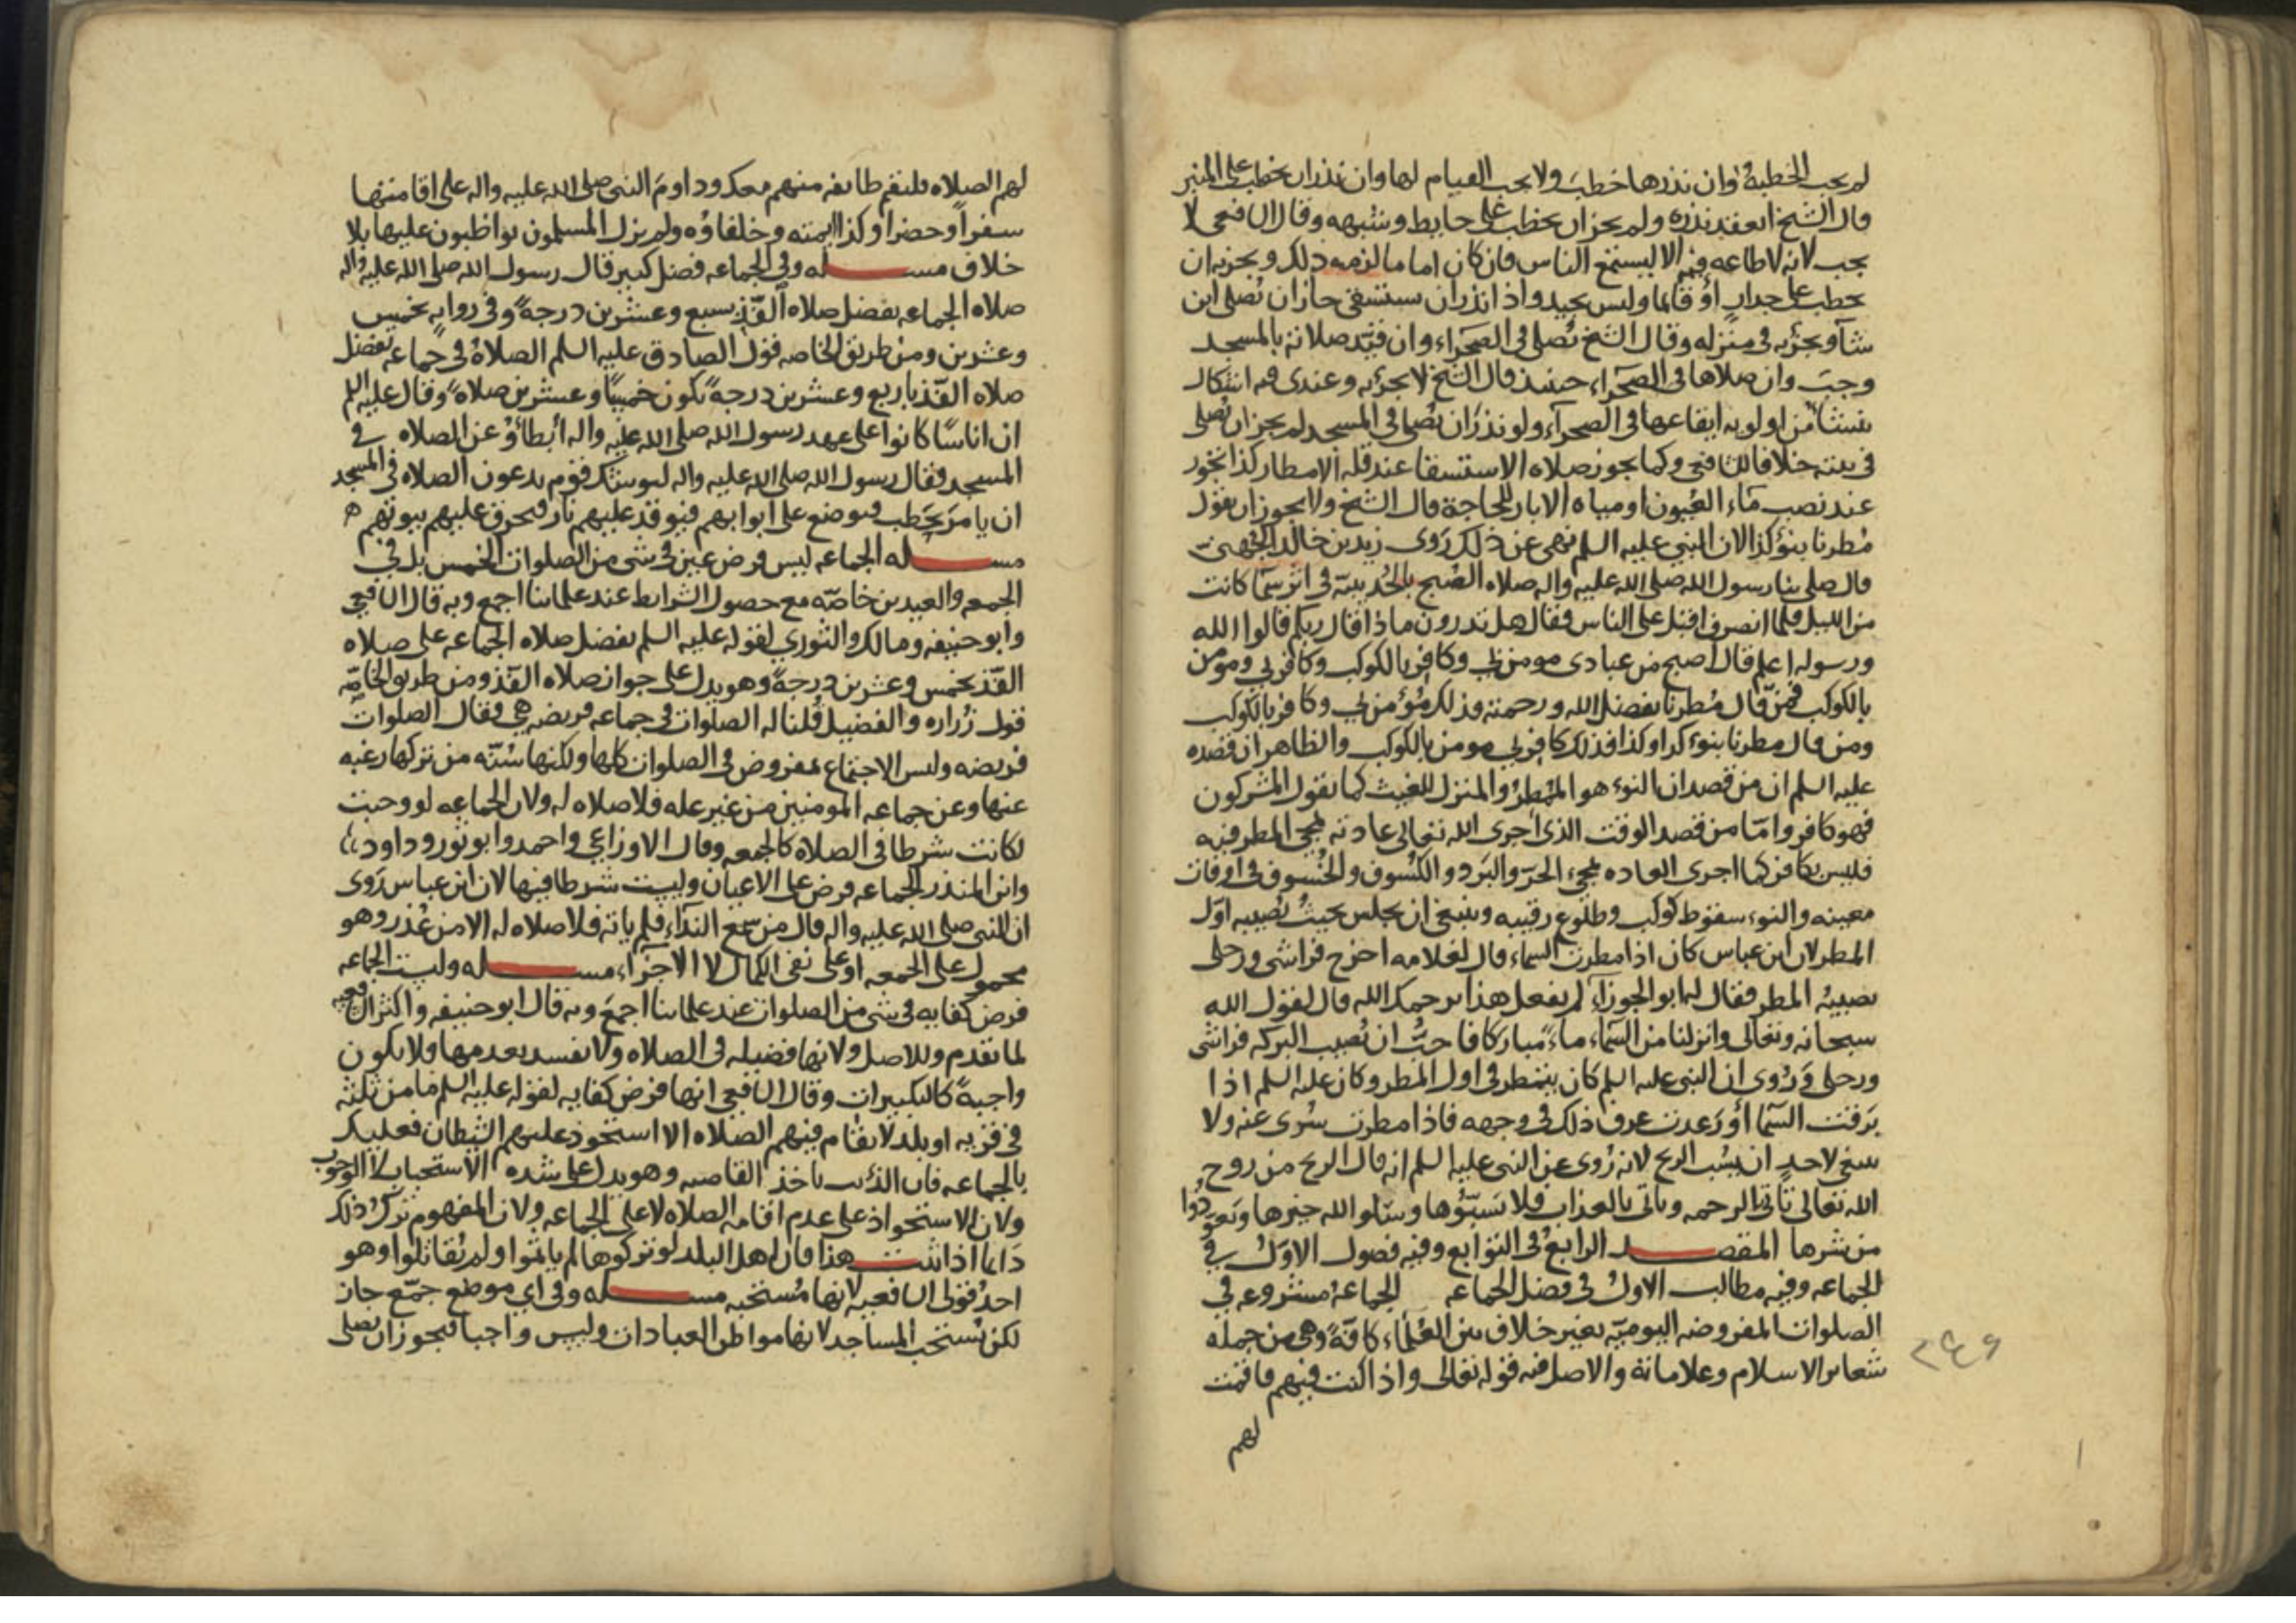 لم يجب الخطبة وان نذرها خطب ولا يجب القيام لها وان نذر ان يخطب على المنبر
قال الشيخ انعقد نذره ولم يجز ان يخطب على حايط وشبهه وقال الشافعي لا
يجب لانه لا طاعة فيه الا ليسمع الناس فان كان اماما لزمه ذلك ويجزيه ان
يخطب على جدار او قائما وليس بجيد واذا نذر ان يستسقي جاز ان يصلي اين
شآء ويجزيه في منزله وقال الشيخ يصلي في الصحراء وان قيد صلاته بالمسجد
وجب وان صلاها في الصحراء حينئذ قال الشيخ لا يجزيه وعندي فيه اشكال
ينشا من اولوية ايقاعها في الصحرآء ولو نذر ان يصلي في المسجد لم يجز ان يصلي
في بيته خلافا للشافعي وكما يجوز صلاه الاستسقا عند قله الامطار كذا يجوز
عند نضب مآء العيون او مياه الابار للحاجة قال الشيخ ولا يجوز ان يقول
مطرنا بنوء كذا لان النبي عليه السلم نهى عن ذلك روى زيد بن خالد الجهني
قال صلى بنا رسول الله صلى الله عليه واله صلاه الصبح بالحديبية في اثر سما كانت
من الليل فلما انصرف اقبل على الناس فقال هل تدرون ماذا قال ربكم قالوا الله
ورسوله اعلم قال اصبح من عبادي مومن بي وكافر بالكوكب وكافر بي ومومن
بالكوكب فمن قال مطرنا بفضل الله ورحمته فذلك مؤمن بي وكافر بالكوكب
ومن قال مطرنا بنوء كذا وكذا فذلك كافر بي مومن بالكوكب والظاهر ان قصده
عليه السلم ان من قصد ان النوء هو الممطر والمنزل للغيث كما يقول المشركون
فهو كافر واما من قصد الوقت الذى اجرى الله تعالى عادته بمجئ المطر فيه
فليس بكافر كما اجرى العاده بمجيء الحر والبرد والكسوف والخسوف في اوقات
معينه والنوء سقوط كوكب وطلوع رقيبه وينبغي ان يجلس بحيث يصيبه اول
المطر لان ابن عباس كان اذا مطرت السماء قال لغلامه اخرج فراشى ورحلى
يصيبه المطر فقال له ابو الجوزآء لم تفعل هذا يرحمك الله قال لقول الله
سبحانه وتعالى وانزلنا من السماء ماءً مباركا فاحب ان تصيب البركه فراشى
ورحلى وروى ان النبى عليه السلم كان يتمطر في اول المطر وكان عليه السلم اذا
برقت السما او رعدت عرف ذلك في وجهه فاذا مطرت سرى عنه ولا
ينبغي لاحد ان يسب الريح لانه روى عن النبى عليه السلم انه قال الريح من روح
الله تعالى تاتي بالرحمه وتاتى بالعذاب فلا تسبوها وسلوا الله خيرها وتعوذوا
من شرها المقصد الرابع في التوابع وفيه فصول الاول في
الجماعه وفيه مطالب الاول في فضل الجماعه الجماعة مشروعه في
الصلوات المفروضه اليومية بغير خلاف بين العلماء كافة وهي من جمله
شعاير الاسلام وعلاماته والاصل فيه قوله تعالى واذا كنت فيهم فاقمت
لهم
٢٤٦
لهم الصلاه فلتقم طايفه منهم معك وداوم النبى صلى الله عليه واله على اقامتها
سفرا وحضرا وكذا ايمته وخلفاؤه ولم يزل المسلمون يواظبون عليها بلا
خلاف مسله وفي الجماعه فضل كبير قال رسول الله صلى الله عليه واله
صلاه الجماعه تفضل صلاه الفذ بسبع وعشرين درجة وفي روايه بخمس
وعشرين ومن طريق الخاصه قول الصادق عليه السلم الصلاة في جماعه تفضل
صلاه الفذ باربع وعشرين درجة تكون خمسا وعشرين صلاة وقال عليه السلم
ان اناسا كانوا على عهد رسول الله صلى الله عليه واله ابطاؤا عن الصلاه في
المسجد فقال رسول الله صلى الله عليه واله ليوشك قوم يدعون الصلاه في المسجد
ان يامر بحطب فيوضع على ابوابهم فيوقد عليهم نار فتحرق عليهم بيوتهم ه
مسله الجماعه ليس فرض عين في شى من الصلوات الخمس بل في
الجمعه والعيدين خاصة مع حصول الشرايط عند علمائنا اجمع وبه قال الشافعي
وابو حنيفه ومالك والثوري لقوله عليه السلم تفضل صلاه الجماعه على صلاه
الفذ بخمس وعشرين درجة وهو يدل على جواز صلاه الفذ ومن طريق الخاصة
قول زراره والفضيل قلنا له الصلوات في جماعه فريضه هي فقال الصلوات
فريضه وليس الاجتماع بمفروض في الصلوات كلها ولكنها سنة من تركها رغبه
عنها وعن جماعه المومنين من غير عله فلا صلاه له ولان الجماعه لو وجبت
لكانت شرطا في الصلاه كالجمعه وقال الاوزاعي واحمد وابو ثور وداود
وابن المنذر الجماعه فرض على الاعيان وليست شرطا فيها لان ابن عباس روى
ان النبى صلى الله عليه واله قال من سمع الندآء فلم ياته فلا صلاه له الا من عذر وهو
محمول على الجمعه او على نفى الكمال لا الاجزاء مسله وليست الجماعه
فرض كفايه في شى من الصلوات عند علمائنا اجمع وبه قال ابو حنيفه واكثر الشافعيه
لما تقدم وللاصل ولانها فضيله في الصلاه ولا تفسد بعدمها فلا يكون
واجبة كالتكبيرات وقال الشافعي انها فرض كفايه لقوله عليه السلم ما من ثلثه
في قريه او بلد لا تقام فيهم الصلاه الا استحوذ عليهم الشيطان فعليك
بالجماعه فان الذئب ياخذ القاصيه وهو يدل على شده الاستحباب لا الوجوب
ولان الاستحواذ على عدم اقامه الصلاه لا على الجماعه ولان المفهوم ترك ذلك
دايما اذا ثبت هذا فان اهل البلد لو تركوها لم ياثموا ولم يقاتلوا وهو
احد قولى الشافعيه لانها مستحبه مسله وفي اي موضع جمع جاز
لكن يستحب المساجد لانها مواطن العبادات وليس واجبا فيجوز ان يصلى